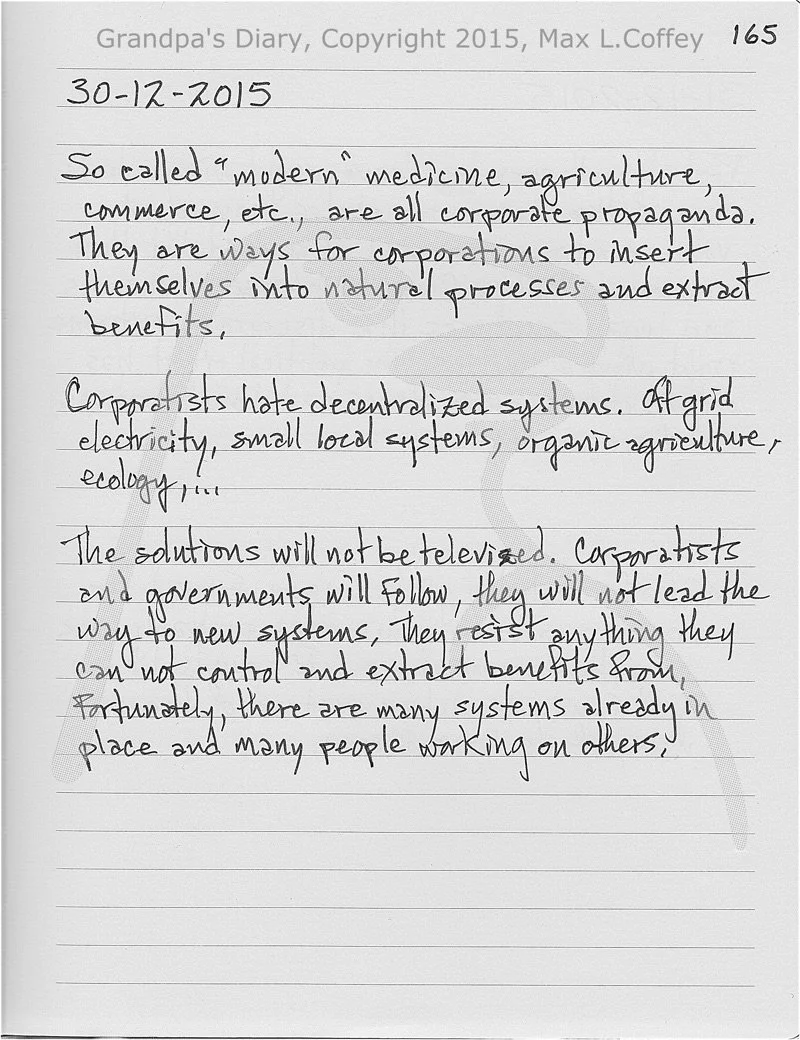 Grandpa's Diary, Copyright 2015, Max L.Coffey 165
30-12-2015
So called "modern" medicine, agriculture,
commerce, etc., are all corporate propaganda.
They are ways for corporations to insert
themselves into natural processes and extract
benefits.
Corporatists hate decentralized systems. Off grid
electricity, small local systems, organic agriculture,
ecology,...
The solutions will not be televised. Corporatists
and governments will follow, they will not lead the
way to new systems, They resist anything they
can not control and extract benefits from,
Fortunately, there are many systems already in
place and many people working on others.